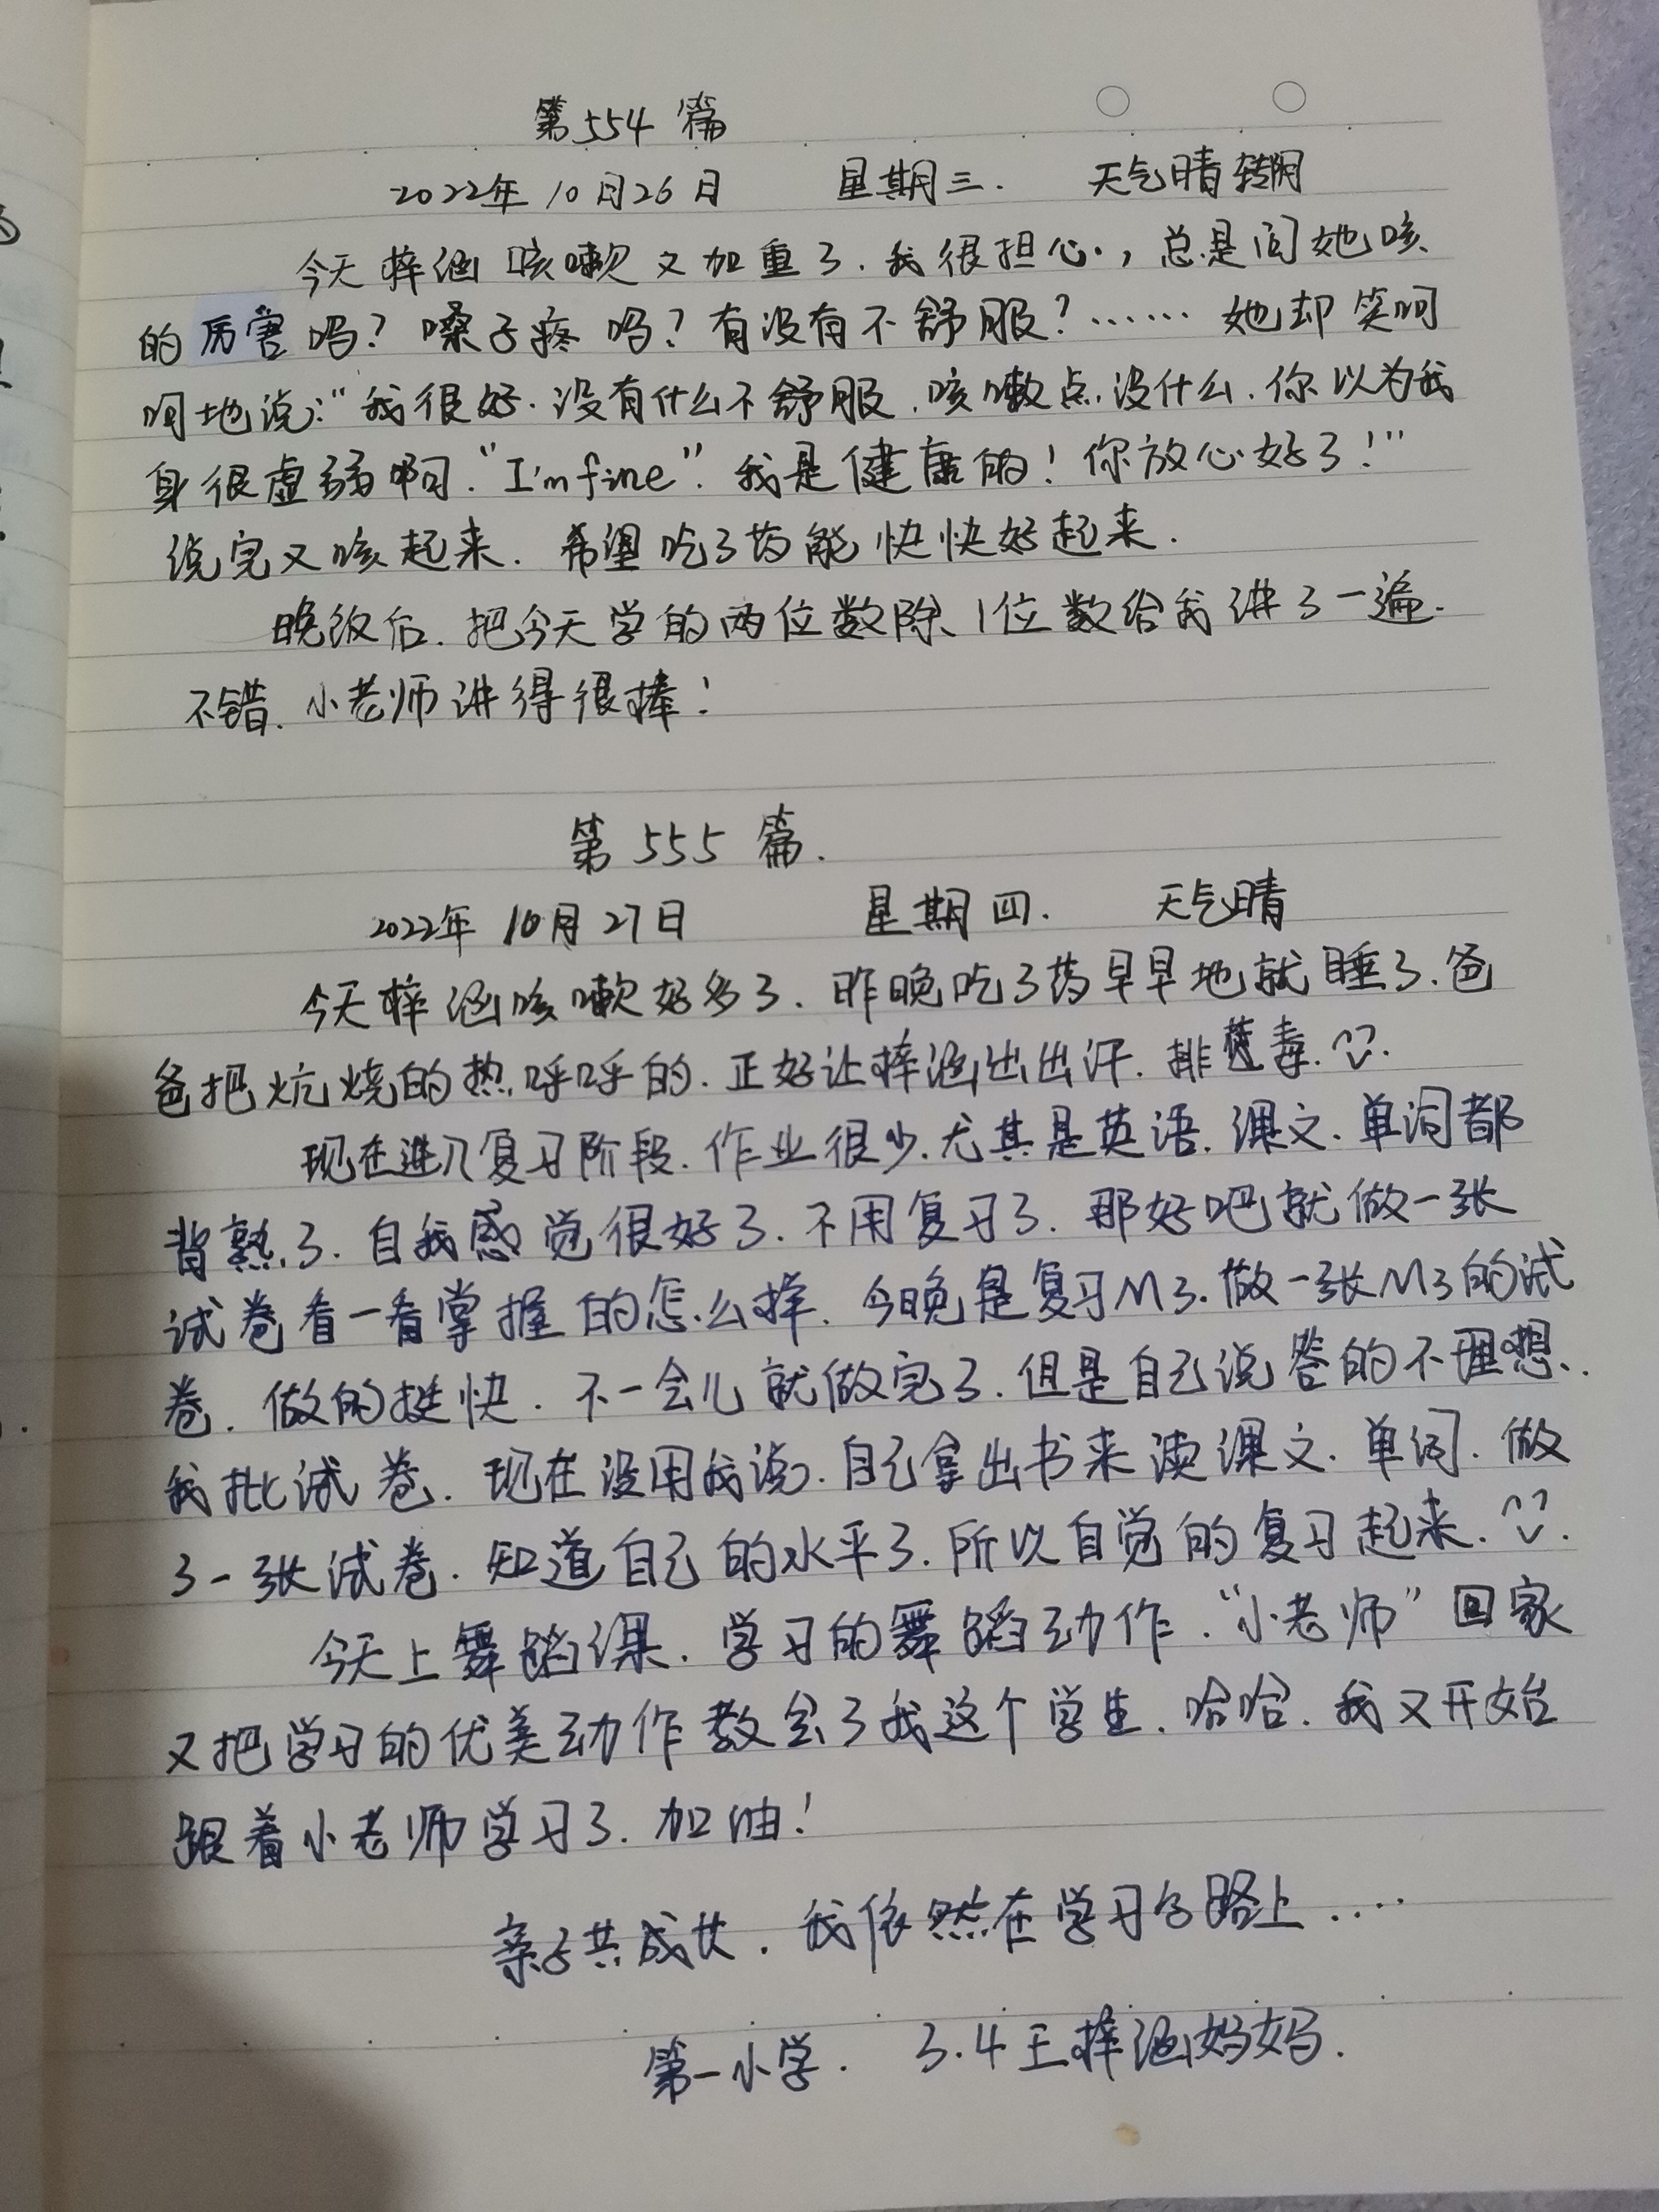 第554篇
2022年10月26日 星期三. 天气晴转阴
今天梓涵咳嗽又加重了.我很担心,总是问她咳
的厉害吗?嗓子疼吗?有没有不舒服?……她却笑呵
呵地说:"我很好.没有什么不舒服.咳嗽点没什么.你以为我
身很虚弱啊."I'm fine".我是健康的!你放心好了!"
说完又咳起来.希望吃了药能快快好起来.
晚饭后.把今天学的两位数除1位数给我讲了一遍.
不错.小老师讲得很棒!
第555篇.
2022年10月27日 星期四. 天气晴
今天梓涵咳嗽好多了.昨晚吃了药早早地就睡了.爸
爸把炕烧的热呼呼的.正好让梓涵出出汗.排毒.
现在进入复习阶段.作业很少.尤其是英语.课文.单词都
背熟了.自我感觉很好了.不用复习了.那好吧就做一张
试卷看一看掌握的怎么样.今晚是复习M3.做一张M3的试
卷.做的挺快.不一会儿就做完了.但是自己说答的不理想.
我批试卷.现在没用我说.自己拿出书来读课文.单词.做
了一张试卷.知道自己的水平了.所以自觉的复习起来.
今天上舞蹈课.学习的舞蹈动作."小老师"回家
又把学习的优美动作教会了我这个学生.哈哈.我又开始
跟着小老师学习了.加油!
亲子共成长.我依然在学习的路上....
第一小学. 3.4王梓涵妈妈.